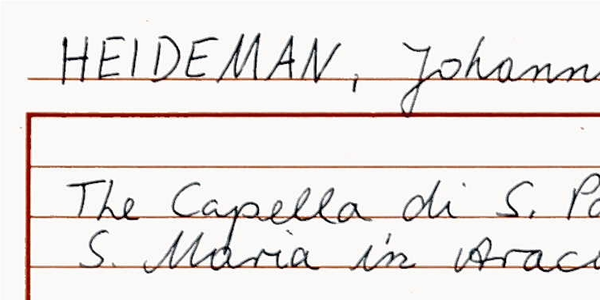 HEIDEMAN, Johann
The Capella di S. Pa
S. Maria in Arac